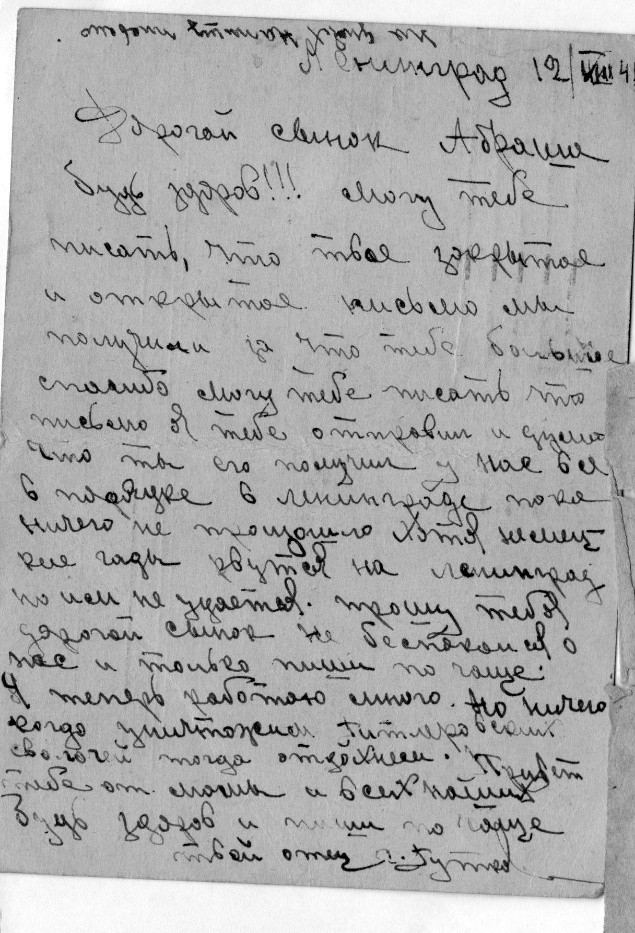 Ленинград 12/VIII 41
Дорогой сынок Абраша
будь здоров!!! могу тебе
писать, что твое закрытое
и открытое письмо мы
получили за что тебе большое
спасибо могу тебе писать что
письмо я тебе отправил и думаю
что ты его получил у нас все
в порядке в ленинграде пока
ничего не произошло хотя немец
кие гады рвутся на ленинград
но им не удается. прошу тебя
дорогой сынок не беспокойся о
нас и только пиши по чаще.
Я теперь работаю много. Но ничего
когда уничтожим гитлеровских
сволочей тогда отдохнем. Привет
тебе от мамы и всех наших
Будь здоров и пиши по чаще
твой отец г. Гутко